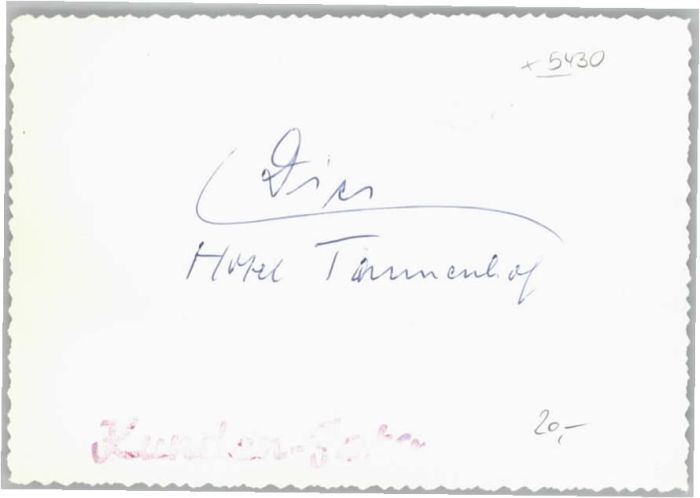 x 5430
Hotel Tannenhof
20,-
Kunden-Foto